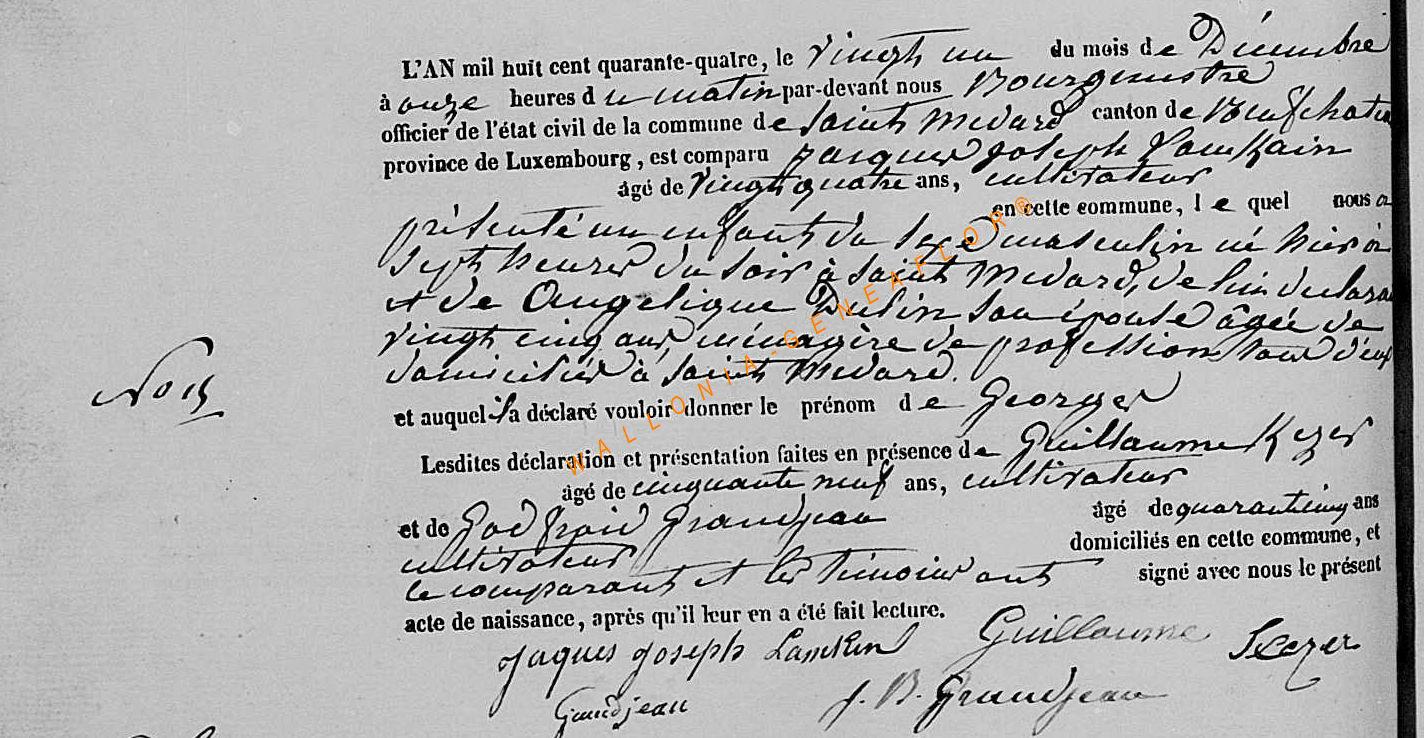 L'AN mil huit cent quarante-quatre, le vingt un du mois de Décembre
à onze heures du matin par-devant nous Bourgmestre
officier de l'état civil de la commune de Saint Medard canton de Neufchatea
province de Luxembourg, est comparu Jacques Joseph Lamkain
âgé de vingt quatre ans, cultivateur
en cette commune, le quel nous a
présenté un enfant du sexe masculin né hier à
Sept heures du soir à Saint Medard, de lui declara
et de Angelique Dulin son épouse âgée de
vingt cinq ans ménagère de profession tous d'eux
domiciliés à Saint Medard.
et auquel il a déclaré vouloir donner le prénom de Georges
Lesdites déclaration et présentation faites en présence de Guillaume Kezer
âgé de cinquante neuf ans, cultivateur
et de Godfroid Grandjean âgé de quarante cinq ans
cultivateur domiciliés en cette commune, et
le comparant et les témoins ont signé avec nous le présent
acte de naissance, après qu'il leur en a été fait lecture.
Jaques Joseph Guillaume
Grandjean J. B. Grandjean
WALLONIA-GENEAFLOR®